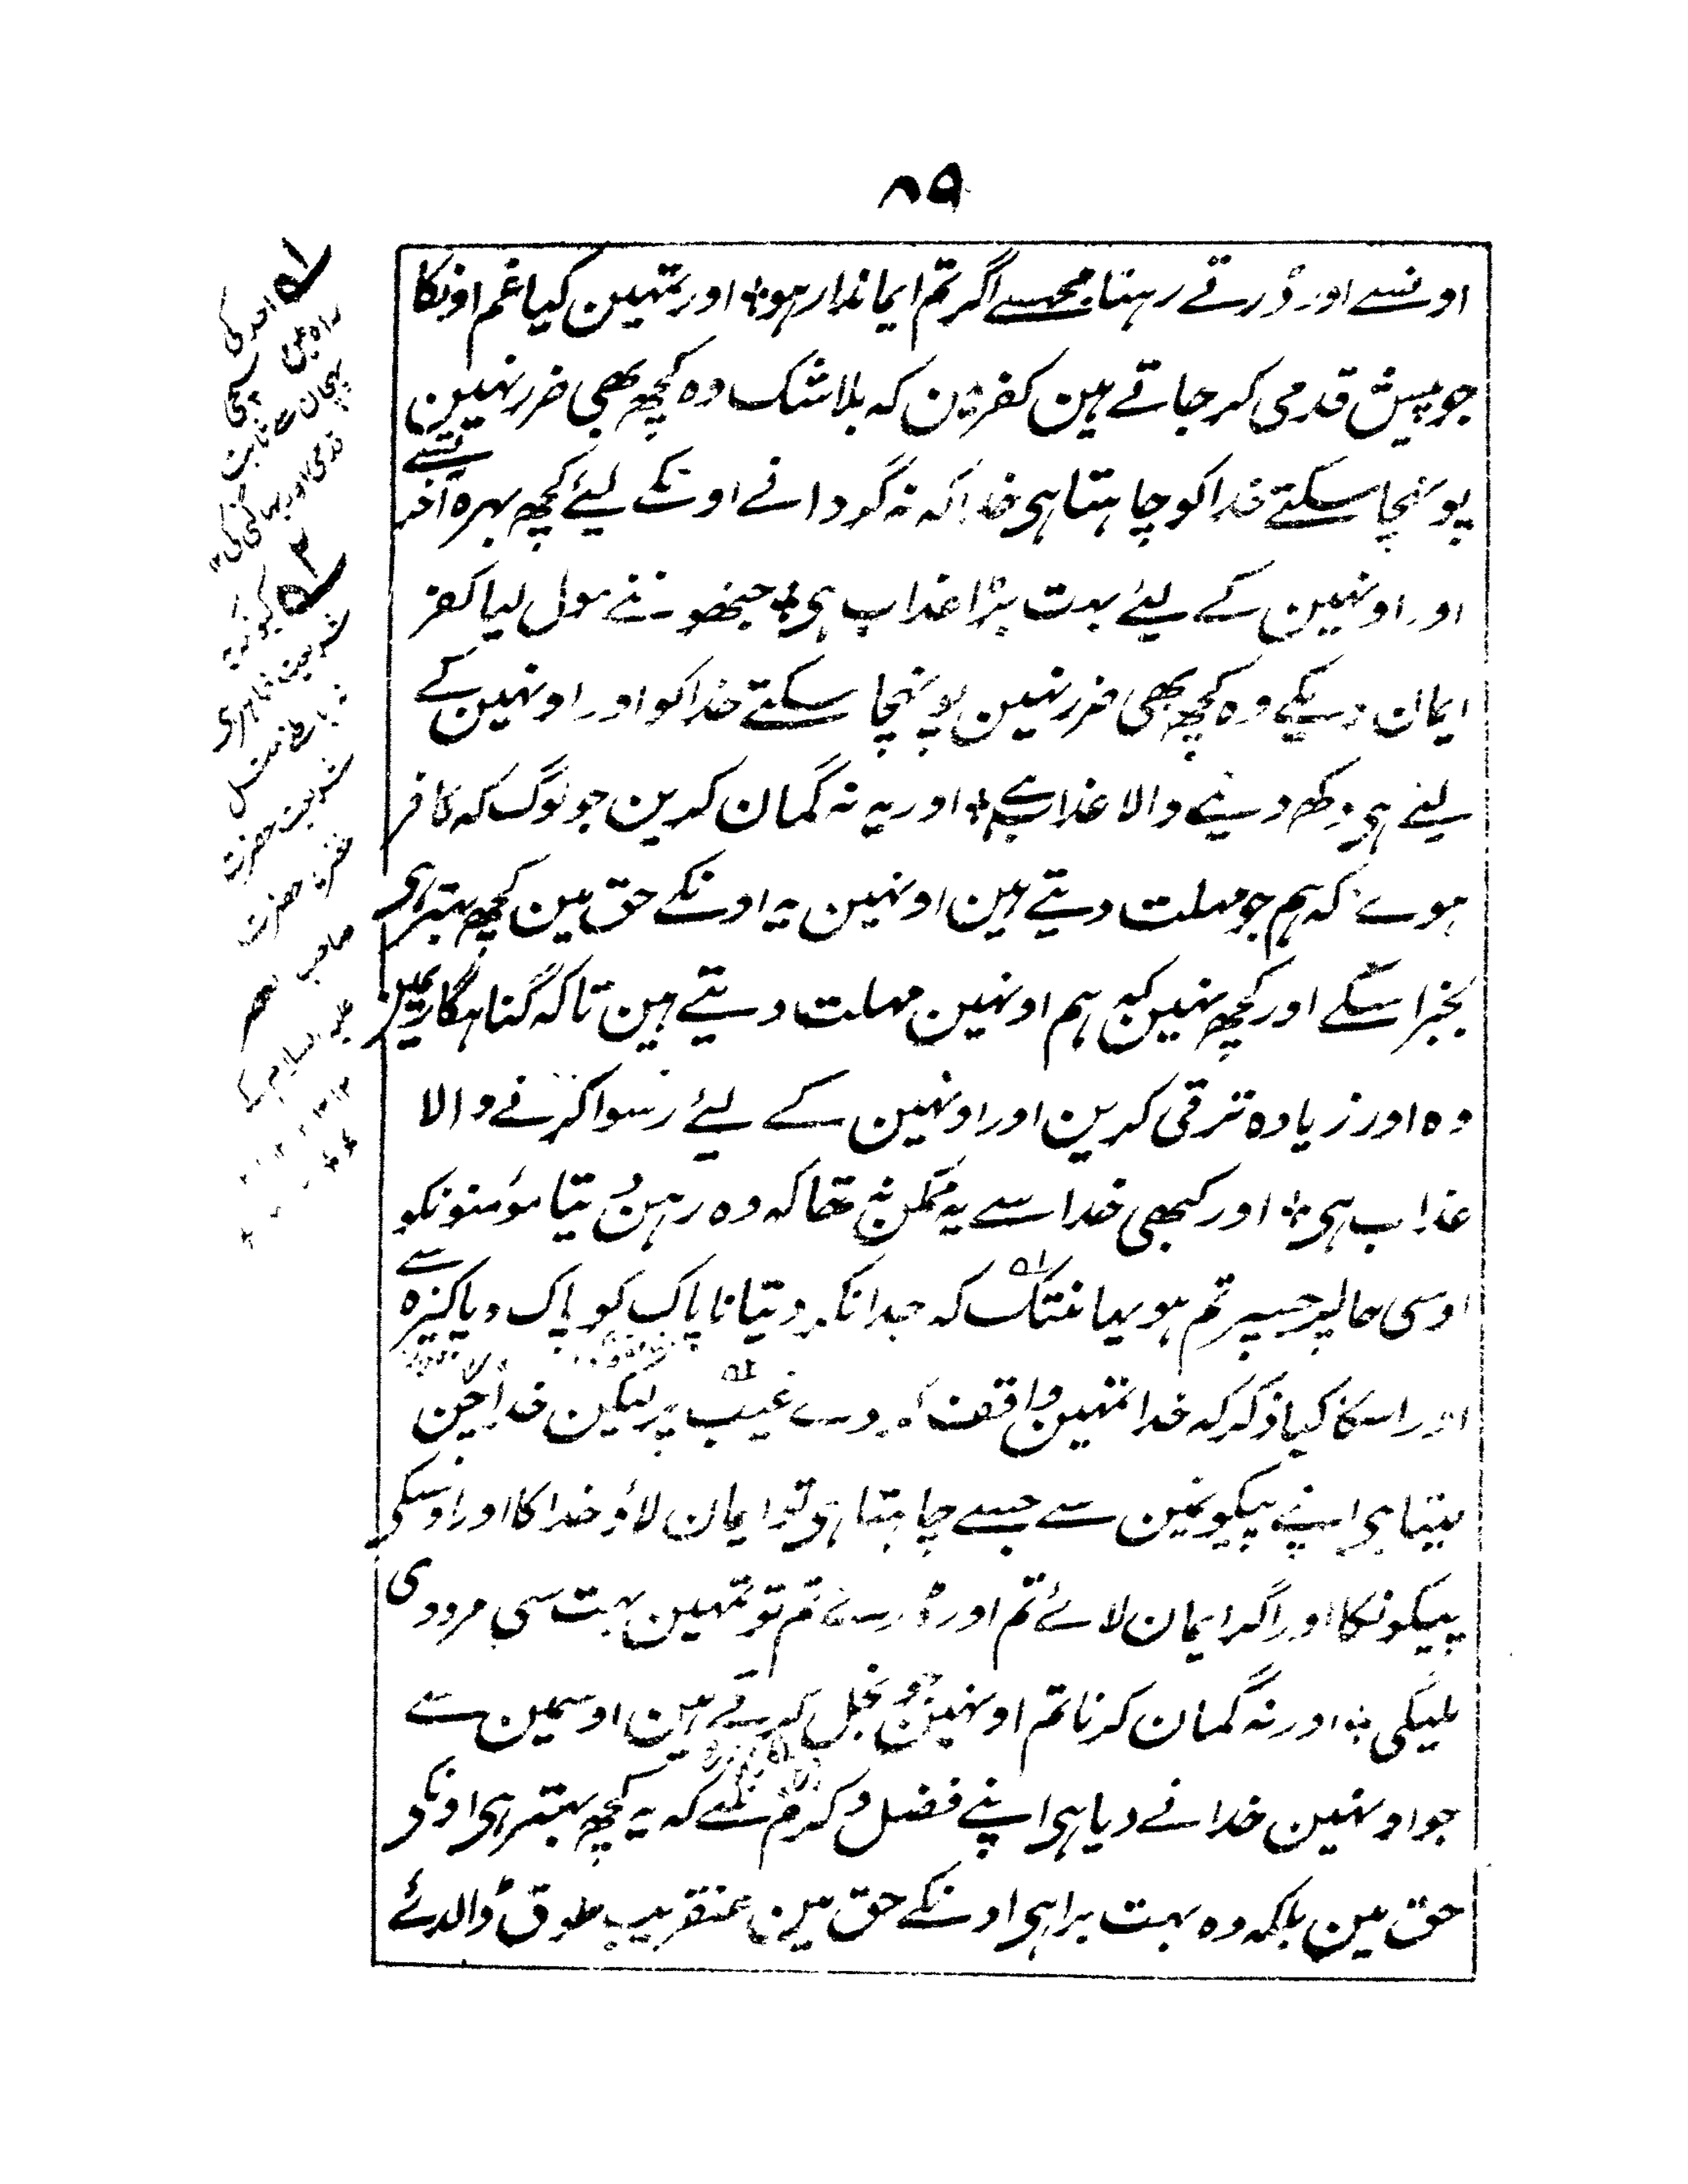 ۸۹
اونسے اور ڈرتے رہنا مجھسے اگر تم ایماندار ہو ÷ اور تمہین کیا غم اونکا
جو پیش قدمی کر جاتے ہین کفر مین کہ بلاشک وہ کچھ بھی ضرر نہین
پونہچا سکتے خدا کو چاہتا ہی خدا کہ نہ گردانے اونکے لیئے کچھ بہرہ آخرتسے
اور اونہین کے لیئے بہت بڑا عذاب ہی ÷ جنھونے مول لیا کفر
ایمان دیکے وہ کچھ بھی ضرر نہین پونہچا سکتے خدا کو اور اونہین کے
لیئے ہی دکھ دینے والا عذاب ہے ÷ اور یہ نہ گمان کرین جو لوگ کہ کافر
ہوے کہ ہم جو مہلت دیتے ہین اونہین یہ اونکے حق مین کچھ بہتر ہی
بجز اسکے اور کچھ نہین کہ ہم اونہین مہلت دیتے ہین تاکہ گناہگاریمین
وہ اور زیادہ ترقی کرین اور اونہین کے لیئے رسوا کرنے والا
عذاب ہی ÷ اور کبھی خدا سے یہ ممکن نہ تھا کہ وہ رہنے دیتا مؤمنونکو
اوسی حالپر جسپر تم ہو یہانتک کہ جدا نکر دیتا ناپاک کو پاک و پاکیزہ سے
اور اسکا کیا ذکر کہ خدا تمہین واقف کر دے غیب پر لیکن خدا چن
لیتا ہی اپنے پیکونمین سے جسے چاہتا ہی تو ایمان لاؤ خدا کا اور اوسکی
پیکونکا اور اگر ایمان لائے تم اور ڈرتے تم تو تمہین بہت سی مزدوری
ملیگی ÷ اور نہ گمان کرنا تم اونہین جو بخل کرتے ہین اوسمین سے
جو اونہین خدا نے دیا ہی اپنے فضل و کرم سے کہ یہ کچھ بہتر ہی اونکی
حق مین بلکہ وہ بہت برا ہی اونکے حق مین عنقریب طوق ڈالدئے